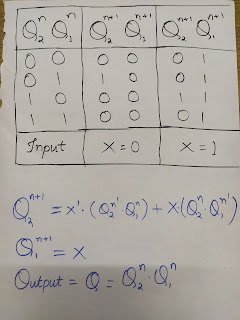 Q₂ⁿ Q₁ⁿ Q₂ⁿ⁺¹ Q₁ⁿ⁺¹ Q₂ⁿ⁺¹ Q₁ⁿ⁺¹
0 0 0 0 0 1
0 1 1 0 0 1
1 0 0 0 1 1
1 1 0 0 0 1
Input X=0 X=1
Q₂ⁿ⁺¹ = x'·(Q₂ⁿ'·Q₁ⁿ) + x(Q₂ⁿ·Q₁ⁿ')
Q₁ⁿ⁺¹ = x
Output = Q = Q₂ⁿ·Q₁ⁿ